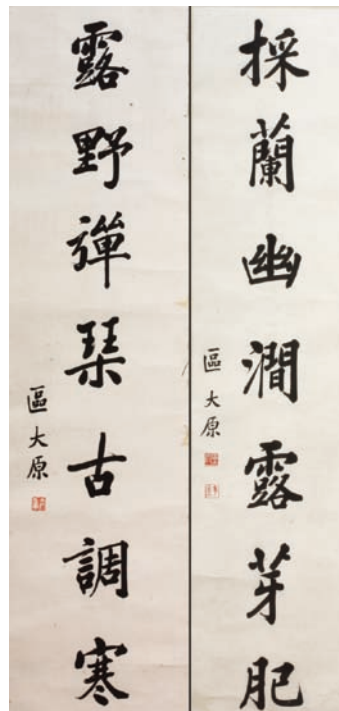 採蘭幽澗露芽肥
區大原
露野彈琴古調寒
區大原